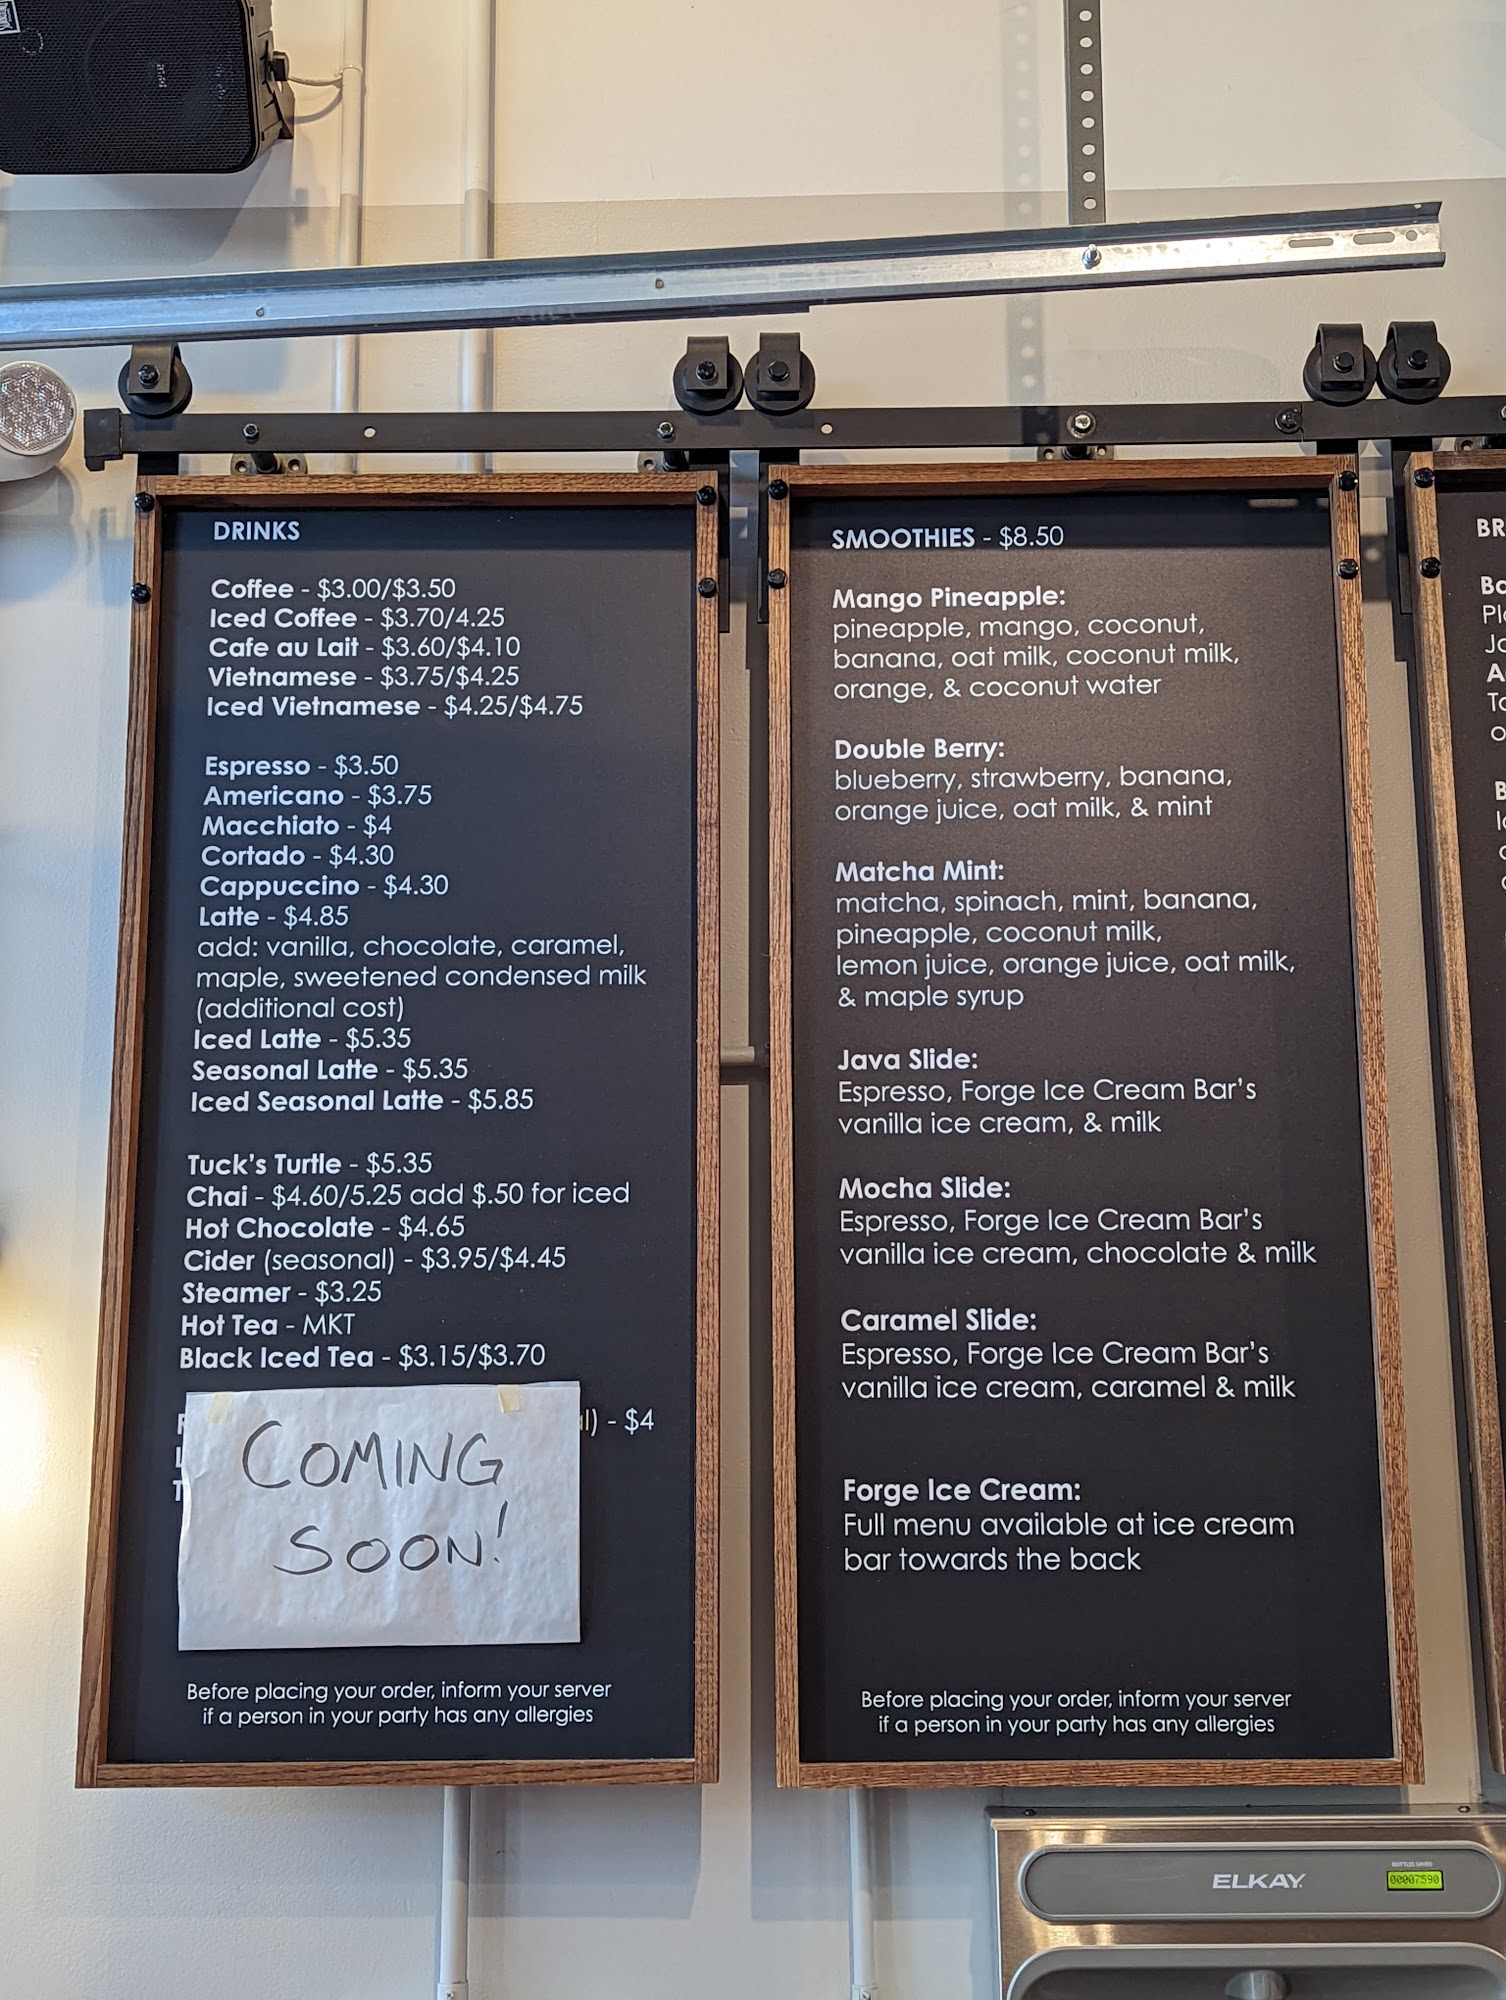 DRINKS
Coffee - $3.00/$3.50
Iced Coffee - $3.70/4.25
Cafe au Lait - $3.60/$4.10
Vietnamese - $3.75/$4.25
Iced Vietnamese - $4.25/$4.75
Espresso - $3.50
Americano - $3.75
Macchiato - $4
Cortado - $4.30
Cappuccino - $4.30
Latte - $4.85
add: vanilla, chocolate, caramel,
maple, sweetened condensed milk
(additional cost)
Iced Latte - $5.35
Seasonal Latte - $5.35
Iced Seasonal Latte - $5.85
Tuck's Turtle - $5.35
Chai - $4.60/5.25 add $.50 for iced
Hot Chocolate - $4.65
Cider (seasonal) - $3.95/$4.45
Steamer - $3.25
Hot Tea - MKT
Black Iced Tea - $3.15/$3.70
- $4
COMING
SOON!
Before placing your order, inform your server
if a person in your party has any allergies
SMOOTHIES - $8.50
Mango Pineapple:
pineapple, mango, coconut,
banana, oat milk, coconut milk,
orange, & coconut water
Double Berry:
blueberry, strawberry, banana,
orange juice, oat milk, & mint
Matcha Mint:
matcha, spinach, mint, banana,
pineapple, coconut milk,
lemon juice, orange juice, oat milk,
& maple syrup
Java Slide:
Espresso, Forge Ice Cream Bar's
vanilla ice cream, & milk
Mocha Slide:
Espresso, Forge Ice Cream Bar's
vanilla ice cream, chocolate & milk
Caramel Slide:
Espresso, Forge Ice Cream Bar's
vanilla ice cream, caramel & milk
Forge Ice Cream:
Full menu available at ice cream
bar towards the back
Before placing your order, inform your server
if a person in your party has any allergies
ELKAY
BOTTLES SAVED
00007590